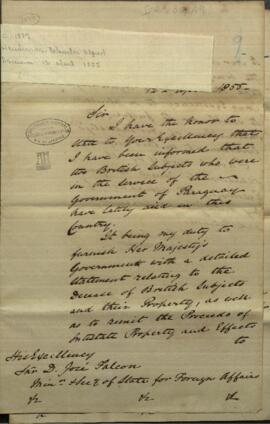 1855
Sir
I have the honor to
state to Your Excellency that
I have been informed that
two British Subjects who were
in the service of the
Government of Paraguay
have lately died in this
Country.
It being my duty to
furnish Her Majesty's
Government with a detailed
statement relating to the
Decease of British Subjects
and their Property, as well
as to remit the Proceeds of
Intestate Property and Effects
to
His Excellency
Sñr D. José Falcon
Minr. Secy. of State for Foreign Affairs
&c &c &c